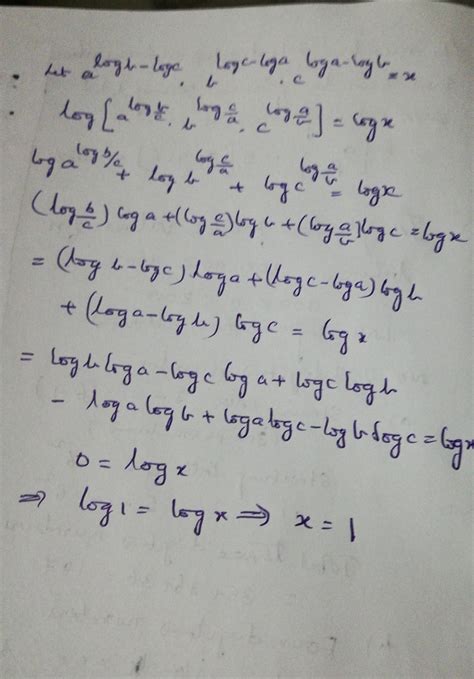 Let a^(log b - log c) . b^(log c - log a) . c^(log a - log b) = x
log [a^(log b/c) . b^(log c/a) . c^(log a/b)] = log x
log a^(log b/c) + log b^(log c/a) + log c^(log a/b) = log x
(log b/c) log a + (log c/a) log b + (log a/b] log c = log x
= (log b - log c) log a + (log c - log a) log b
+ (log a - log b) log c = log x
= log b log a - log c log a + log c log b
- log a log b + log a log c - log b log c = log x
0 = log x
⇒ log 1 = log x ⇒ x = 1